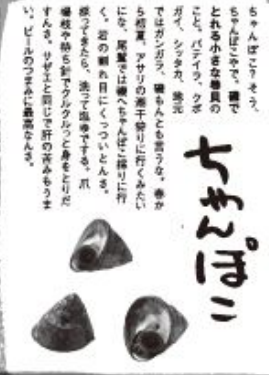 ちゃんぽこ
ちゃんぽこ？そう、
ちゃんぽこやで。磯で
とれる小さな巻貝の
こと。バテイラ、クボ
ガイ、シッタカ、地元
ではガンガラ、磯もんとも言うな。春か
ら初夏、アサリの潮干狩りに行くみたい
にな、尾鷲では磯へちゃんぽこ採りに行
く。岩の割れ目にくっついとんさ。
採ってきたら、洗って塩ゆでする。爪
楊枝や待ち針でクルクルっと身をとりだ
すんさ。サザエと同じで肝の苦みもうま
い。ビールのつまみに最高なんさ。